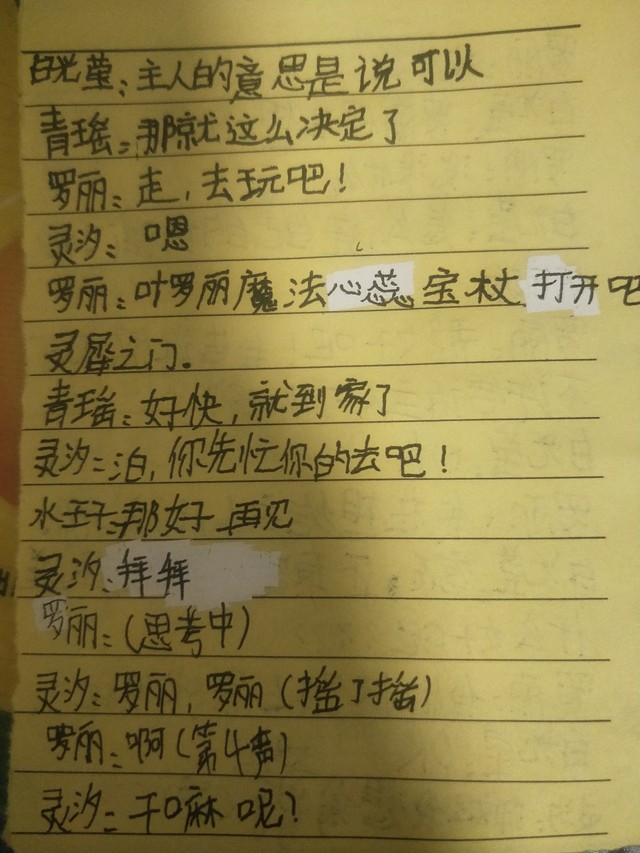 白光莹:主人的意思是说可以
青瑶:那就这么决定了
罗丽:走,去玩吧!
灵汐:嗯
罗丽:叶罗丽魔法心蕊宝杖打开吧
灵犀之门。
青瑶:好快,就到家了
灵汐:泊,你先忙你的去吧!
水王子:那好 再见
灵汐:拜拜
罗丽:(思考中)
灵汐:罗丽,罗丽(摇了摇)
罗丽:啊(第4声)
灵汐:干嘛呢?